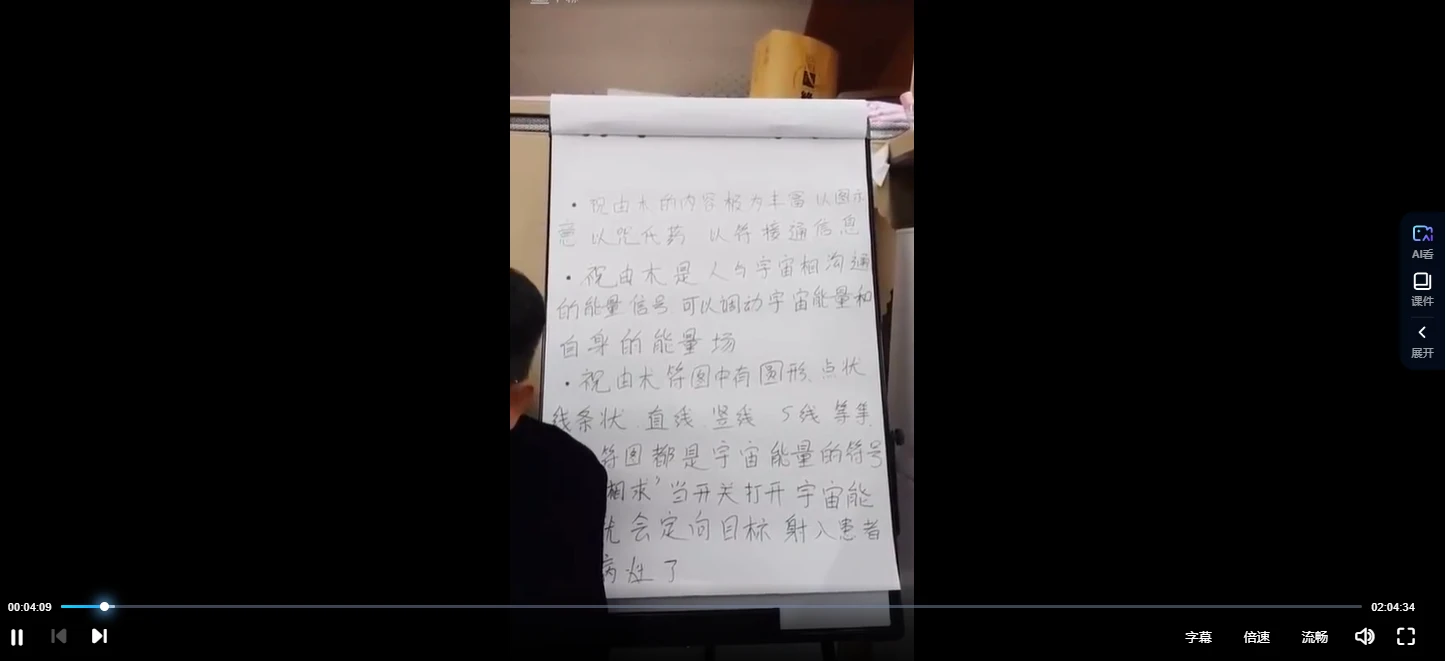 • 祝由术的内容极为丰富 以图示
意 以咒代药 以符接通信息
• 祝由术是 人与宇宙相沟通
的能量信号 可以调动宇宙能量和
自身的能量场
• 祝由术符图中有圆形、点状
线条状、直线、竖线 S线 等等
符图都是宇宙能量的符号
相求’当开关打开宇宙能
就会定向目标 射入患者
病灶了
AI看
课件
展开
00:04:09
02:04:34
字幕
倍速
流畅